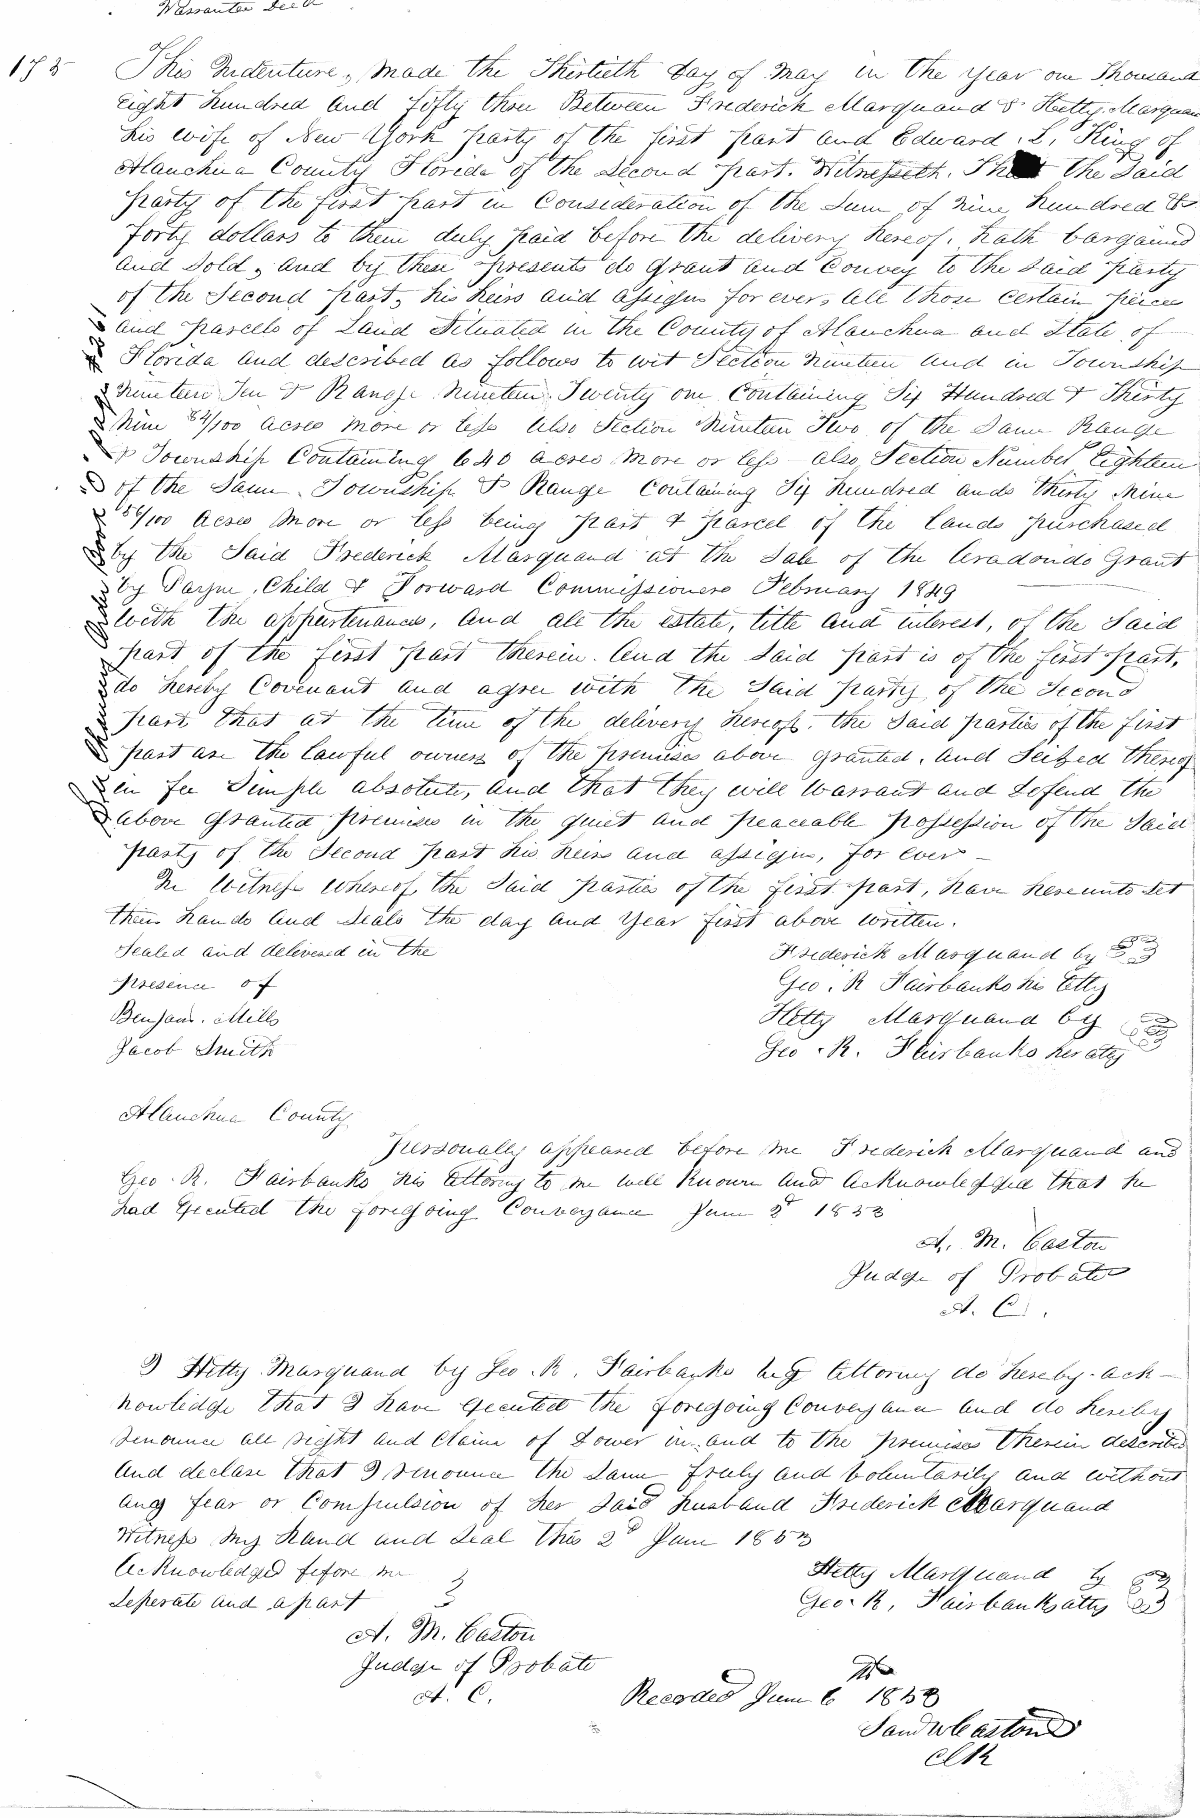 Warrantee Deed
175
This Indenture, made the Thirtieth day of May in the year one Thousand
Eight hundred and fifty three Between Frederick Marquand & Hetty Marquand
his wife of New York party of the first part and Edward L. King of
Alauchua County Florida of the Second part. Witnesseth. That the Said
party of the first part in Consideration of the Sum of nine hundred &
forty dollars to them duly paid before the delivery hereof, hath bargained
and Sold, and by these presents do grant and Convey to the said party
of the Second part, his heirs and assigns for ever, all those certain pieces
and parcels of Land Situated in the County of Alauchua and State of
Florida and described as follows to wit Section Nineteen and in Township
nineteen Ten & Range nineteen Twenty one Containing Six Hundred & Thirty
Nine 82/100 acres more or less also Section Nineteen Two of the Same Range
& Township Containing 640 acres more or less also Section Number Eighteen
of the Same Township & Range Containing Six hundred and thirty Nine
56/100 acres more or less being part & parcel of the lands purchased
by the Said Frederick Marquand at the Sale of the Aradondo Grant
by Payne, Child & Forward Commissioners February 1849
with the appurtenances, and all the estate, title and interest, of the Said
part of the first part therein. And the Said part is of the first part,
do hereby Covenant and agree with the Said party of the Second
part that at the time of the delivery hereof, the Said parties of the first
part are the lawful owners of the premises above granted, and Seized thereof
in fee Simple absolute, and that they will Warrant and Defend the
above granted premises in the quiet and peaceable possession of the Said
party of the Second part his heirs and assigns, for ever
In Witness whereof, the Said parties of the first part, have hereunto Set
their hands and Seals the day and Year first above written.
Sealed and delivered in the
presence of
Benjam. Mills
Jacob Smith
Frederick Marquand by
Geo. R Fairbanks his Atty
Hetty Marquand by
Geo. R. Fairbanks her atty
See Chancery Order Book "O" page #261
Alauchua County
Personally appeared before me Frederick Marquand and
Geo. R. Fairbanks his Attorney to me well Known and acknowledged that he
had Executed the foregoing Conveyance June 2d 1853
A. M. Caston
Judge of Probate
A. C.
I Hetty Marquand by Geo. R. Fairbanks her Attorney do hereby ack-
nowledge that I have executed the foregoing Conveyance and do hereby
renounce all right and Claim of Dower in and to the premises therein described
and declare that I renounce the Same freely and Voluntarily and without
any fear or Compulsion of her Said husband Frederick Marquand
Witness my hand and Seal this 2d June 1853
Acknowledged before me
Seperate and apart
Hetty Marquand by
Geo. R. Fairbanks atty
A. M. Caston
Judge of Probate
A. C.
Recorded June 6th 1853
Saml W Caston
Clk